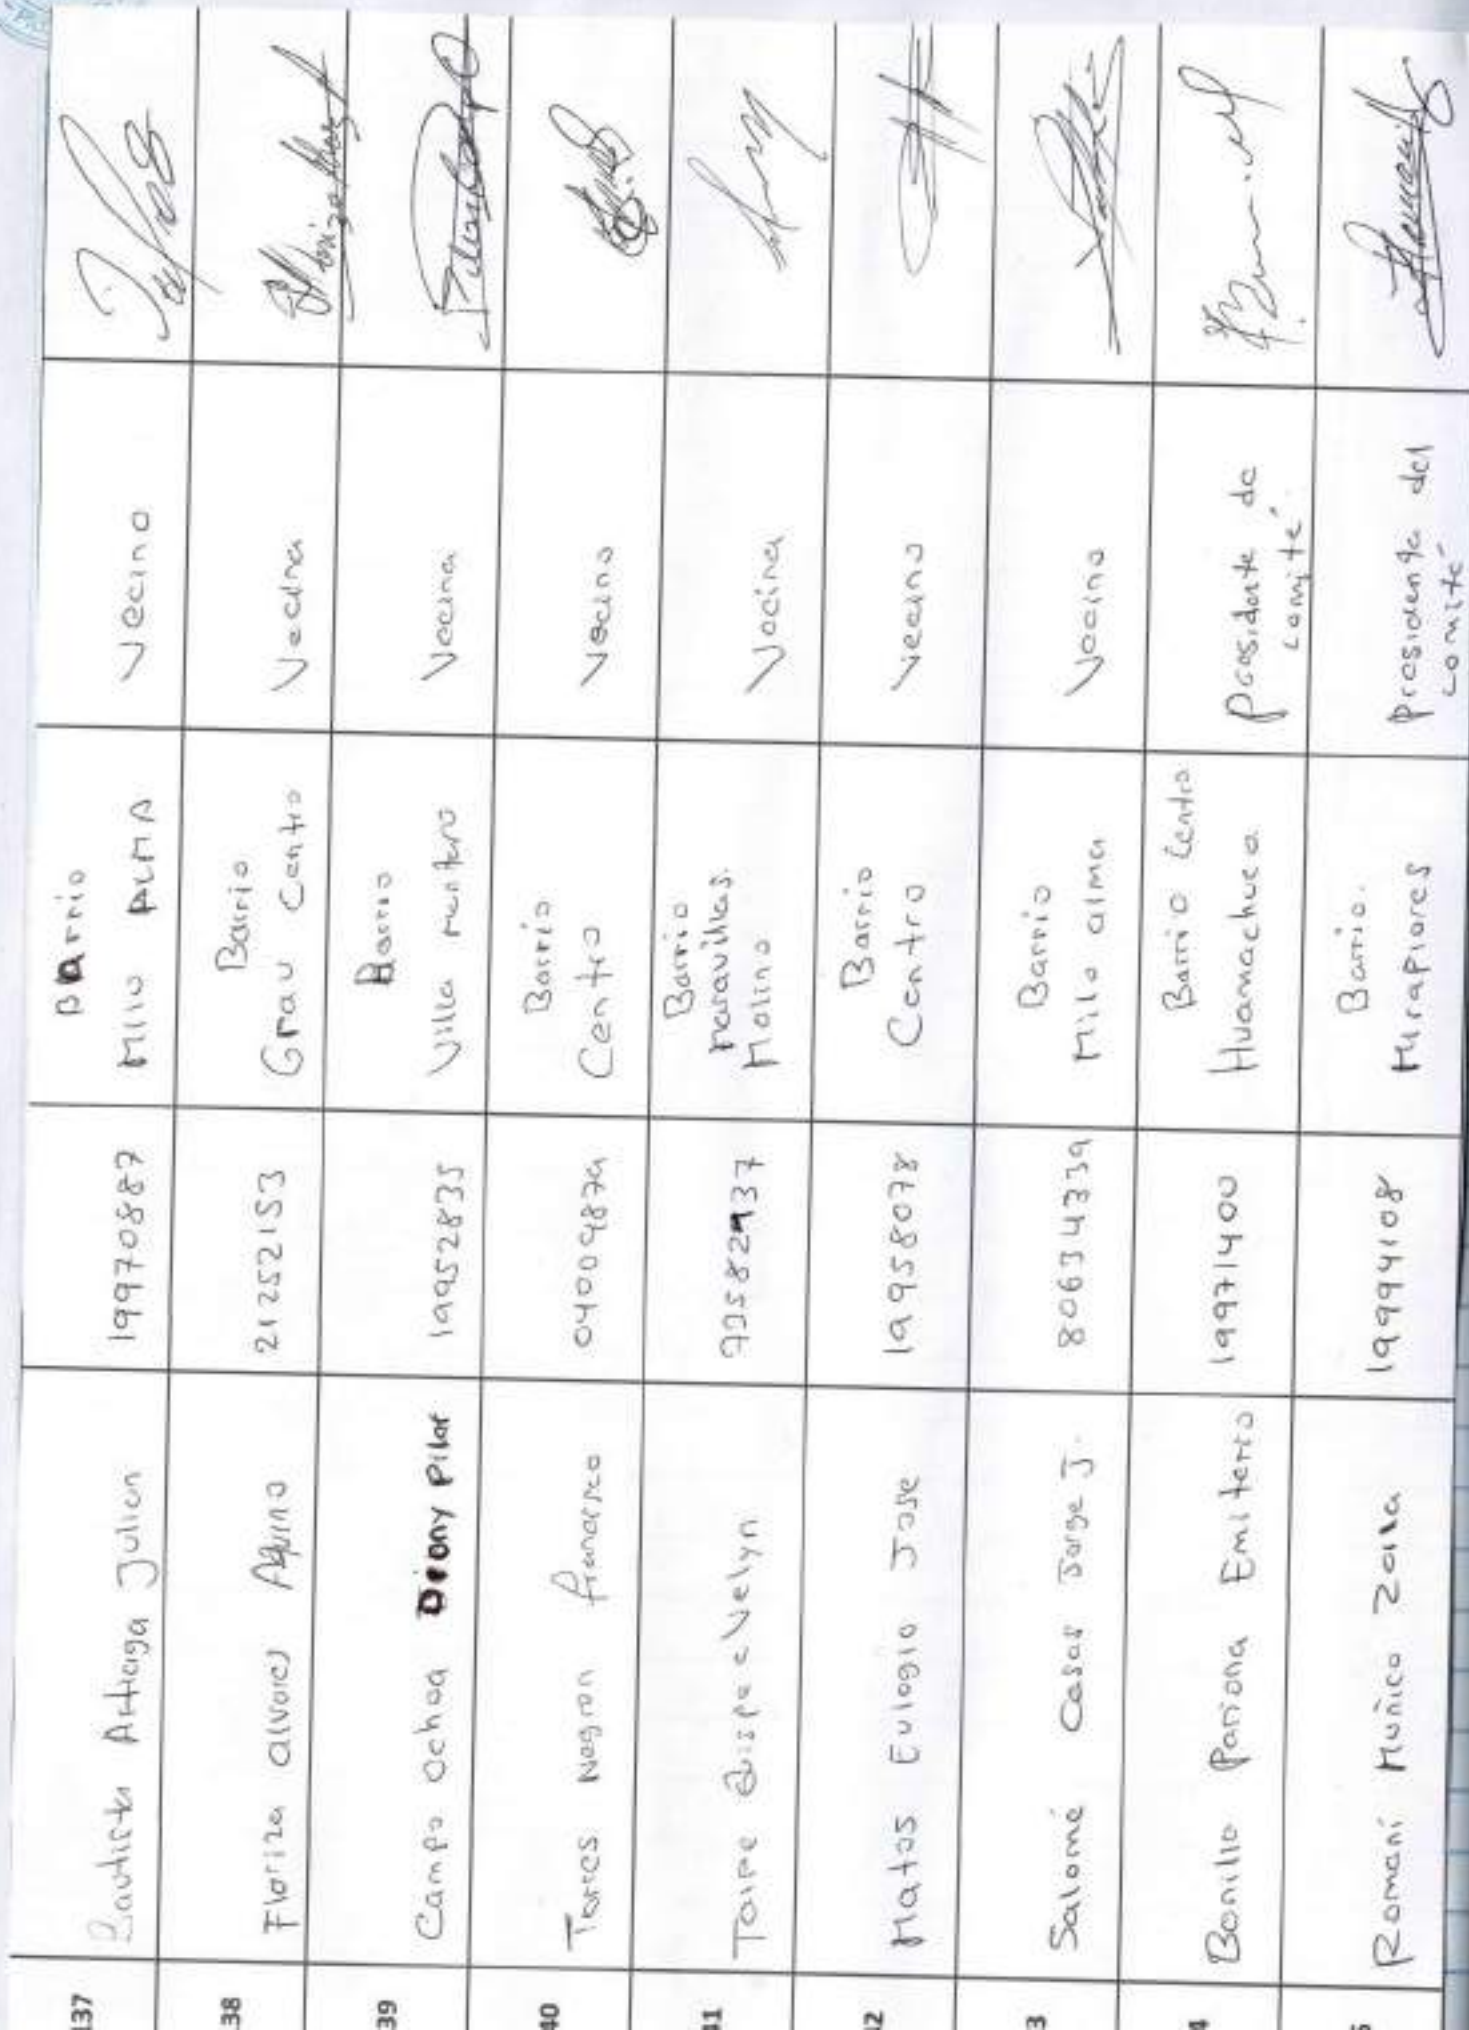 137 Bautista Artiaga Julian 19970887 Barrio
Milo ALMA Vecino
38 Floriza alvarez Aquino 21252153 Barrio
Grau Centro Vecina
39 Campo Ochoa Diony Pilar 19952835 Barrio
Villa mantaro Vecina
40 Torres Negron 04009879 Barrio
Centro Vecino
41 Taipe Quispe eVelyn 72582937 Barrio
Maravillas.
Molino Vecina
42 Matos Eulogio Jose 19958078 Barrio
Centro Vecino
3 Salomé Casas Jorge J. 80634339 Barrio
Milo alma Vecino
4 Bonilla Pariona Emiterio 19971400 Barrio Centro
Huamachuco presidente de
comité
Romaní Muñico Zoila 19994108 Barrio.
Miraflores presidenta del
comité